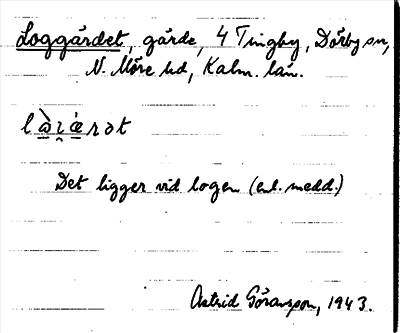 Loggärdet, gärde, 4 Tingby, Dörby sn,
N. Möre hd, Kalm. län.
Det ligger vid logen (enl. medd.)
Astrid Göransson, 1943.